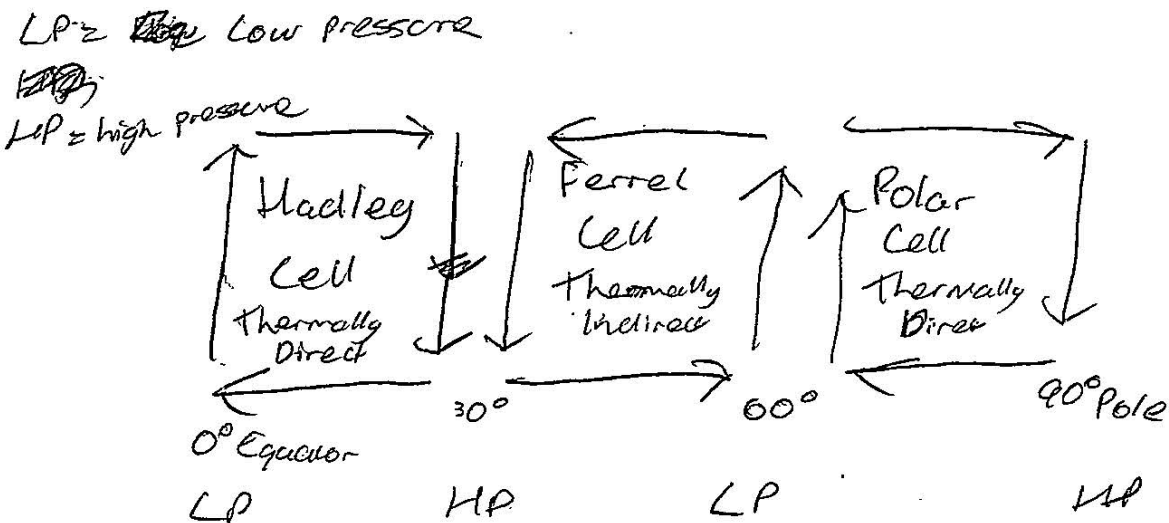 LP = Low pressure
HP = high pressure
Hadley
Cell
Thermally
Direct
Ferrel
Cell
Thermally
Indirect
Polar
Cell
Thermally
Direct
0° Equator
30°
60°
90° Pole
LP
HP
LP
HP